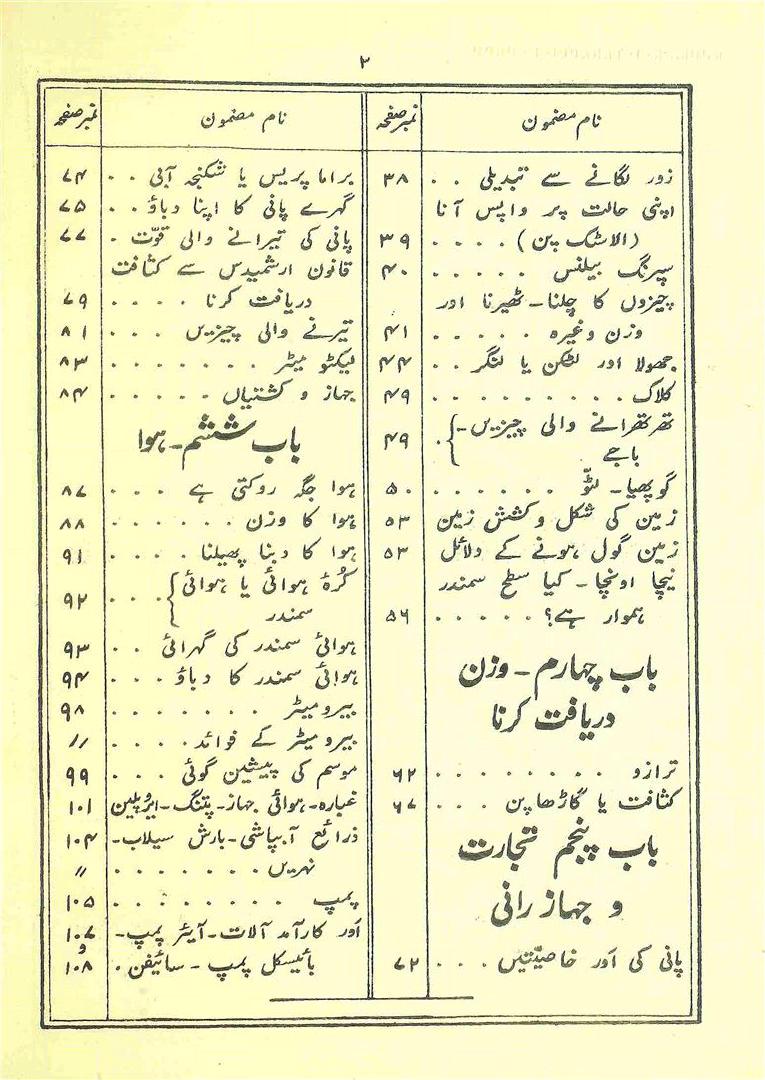 ۲
نام مضمون نمبر صفحہ
زور لگانے سے تبدیلی . . ۳۸
اپنی حالت پر واپس آنا
(الاسٹک پن) . . . . ۳۹
سپرنگ بیلنس . . . . . ۴۰
چیزوں کا چلنا۔ ٹھیرنا اور
وزن وغیرہ . . . . . ۴۱
جھولا اور لٹکن یا لنگر . . ۴۴
کلاک . . . . . . . . . ۴۹
تھرتھرانے والی چیزیں۔
باجے } . ۴۹
گوپھیا۔ لٹّو . . . . . . ۵۰
زمین کی شکل و کشش زمین ۵۳
زمین گول ہونے کے دلائل ۵۳
نیچا اونچا۔ کیا سطح سمندر
ہموار ہے؟ . . . . . ۵۶
باب چہارم۔ وزن
دریافت کرنا
ترازو . . . . . . . . ۶۲
کثافت یا گاڑھا پن . . . . ۶۷
باب پنجم تجارت
و جہاز رانی
پانی کی اَور خاصیّتیں . . . ۷۲
نام مضمون نمبر صفحہ
براما پریس یا شکنجہ آبی . . ۷۴
گہرے پانی کا اپنا دباؤ . . ۷۵
پانی کی تیرانے والی قوّت . ۷۷
قانون ارشمیدس سے کثافت
دریافت کرنا . . . . ۷۹
تیرنے والی چیزیں . . . ۸۱
لیکٹو میٹر . . . . . . . ۸۳
جہاز و کشتیاں . . . . . ۸۴
باب ششم۔ ہوا
ہوا جگہ روکتی ہے . . . ۸۷
ہوا کا وزن . . . . . . ۸۸
ہوا کا دبنا پھیلنا . . . . ۹۱
کُرۂ ہوائی یا ہوائی
سمندر } . . . ۹۲
ہوائی سمندر کی گہرائی . . ۹۳
ہوائی سمندر کا دباؤ . . . ۹۴
بیرومیٹر . . . . . . . ۹۸
بیرومیٹر کے فوائد . . . . //
موسم کی پیشین گوئی . . . ۹۹
غبارہ۔ ہوائی جہاز۔ پتنگ۔ ایروپلین ۱۰۱
ذرائع آبپاشی۔ بارش سیلاب۔ ۱۰۴
نہریں . . . . . . . //
پمپ . . . . . . . . ۱۰۵
اَور کارآمد آلات۔ آئیر پمپ۔ ۱۰۷
و
بائیسکل پمپ۔ سائیفن . ۱۰۸